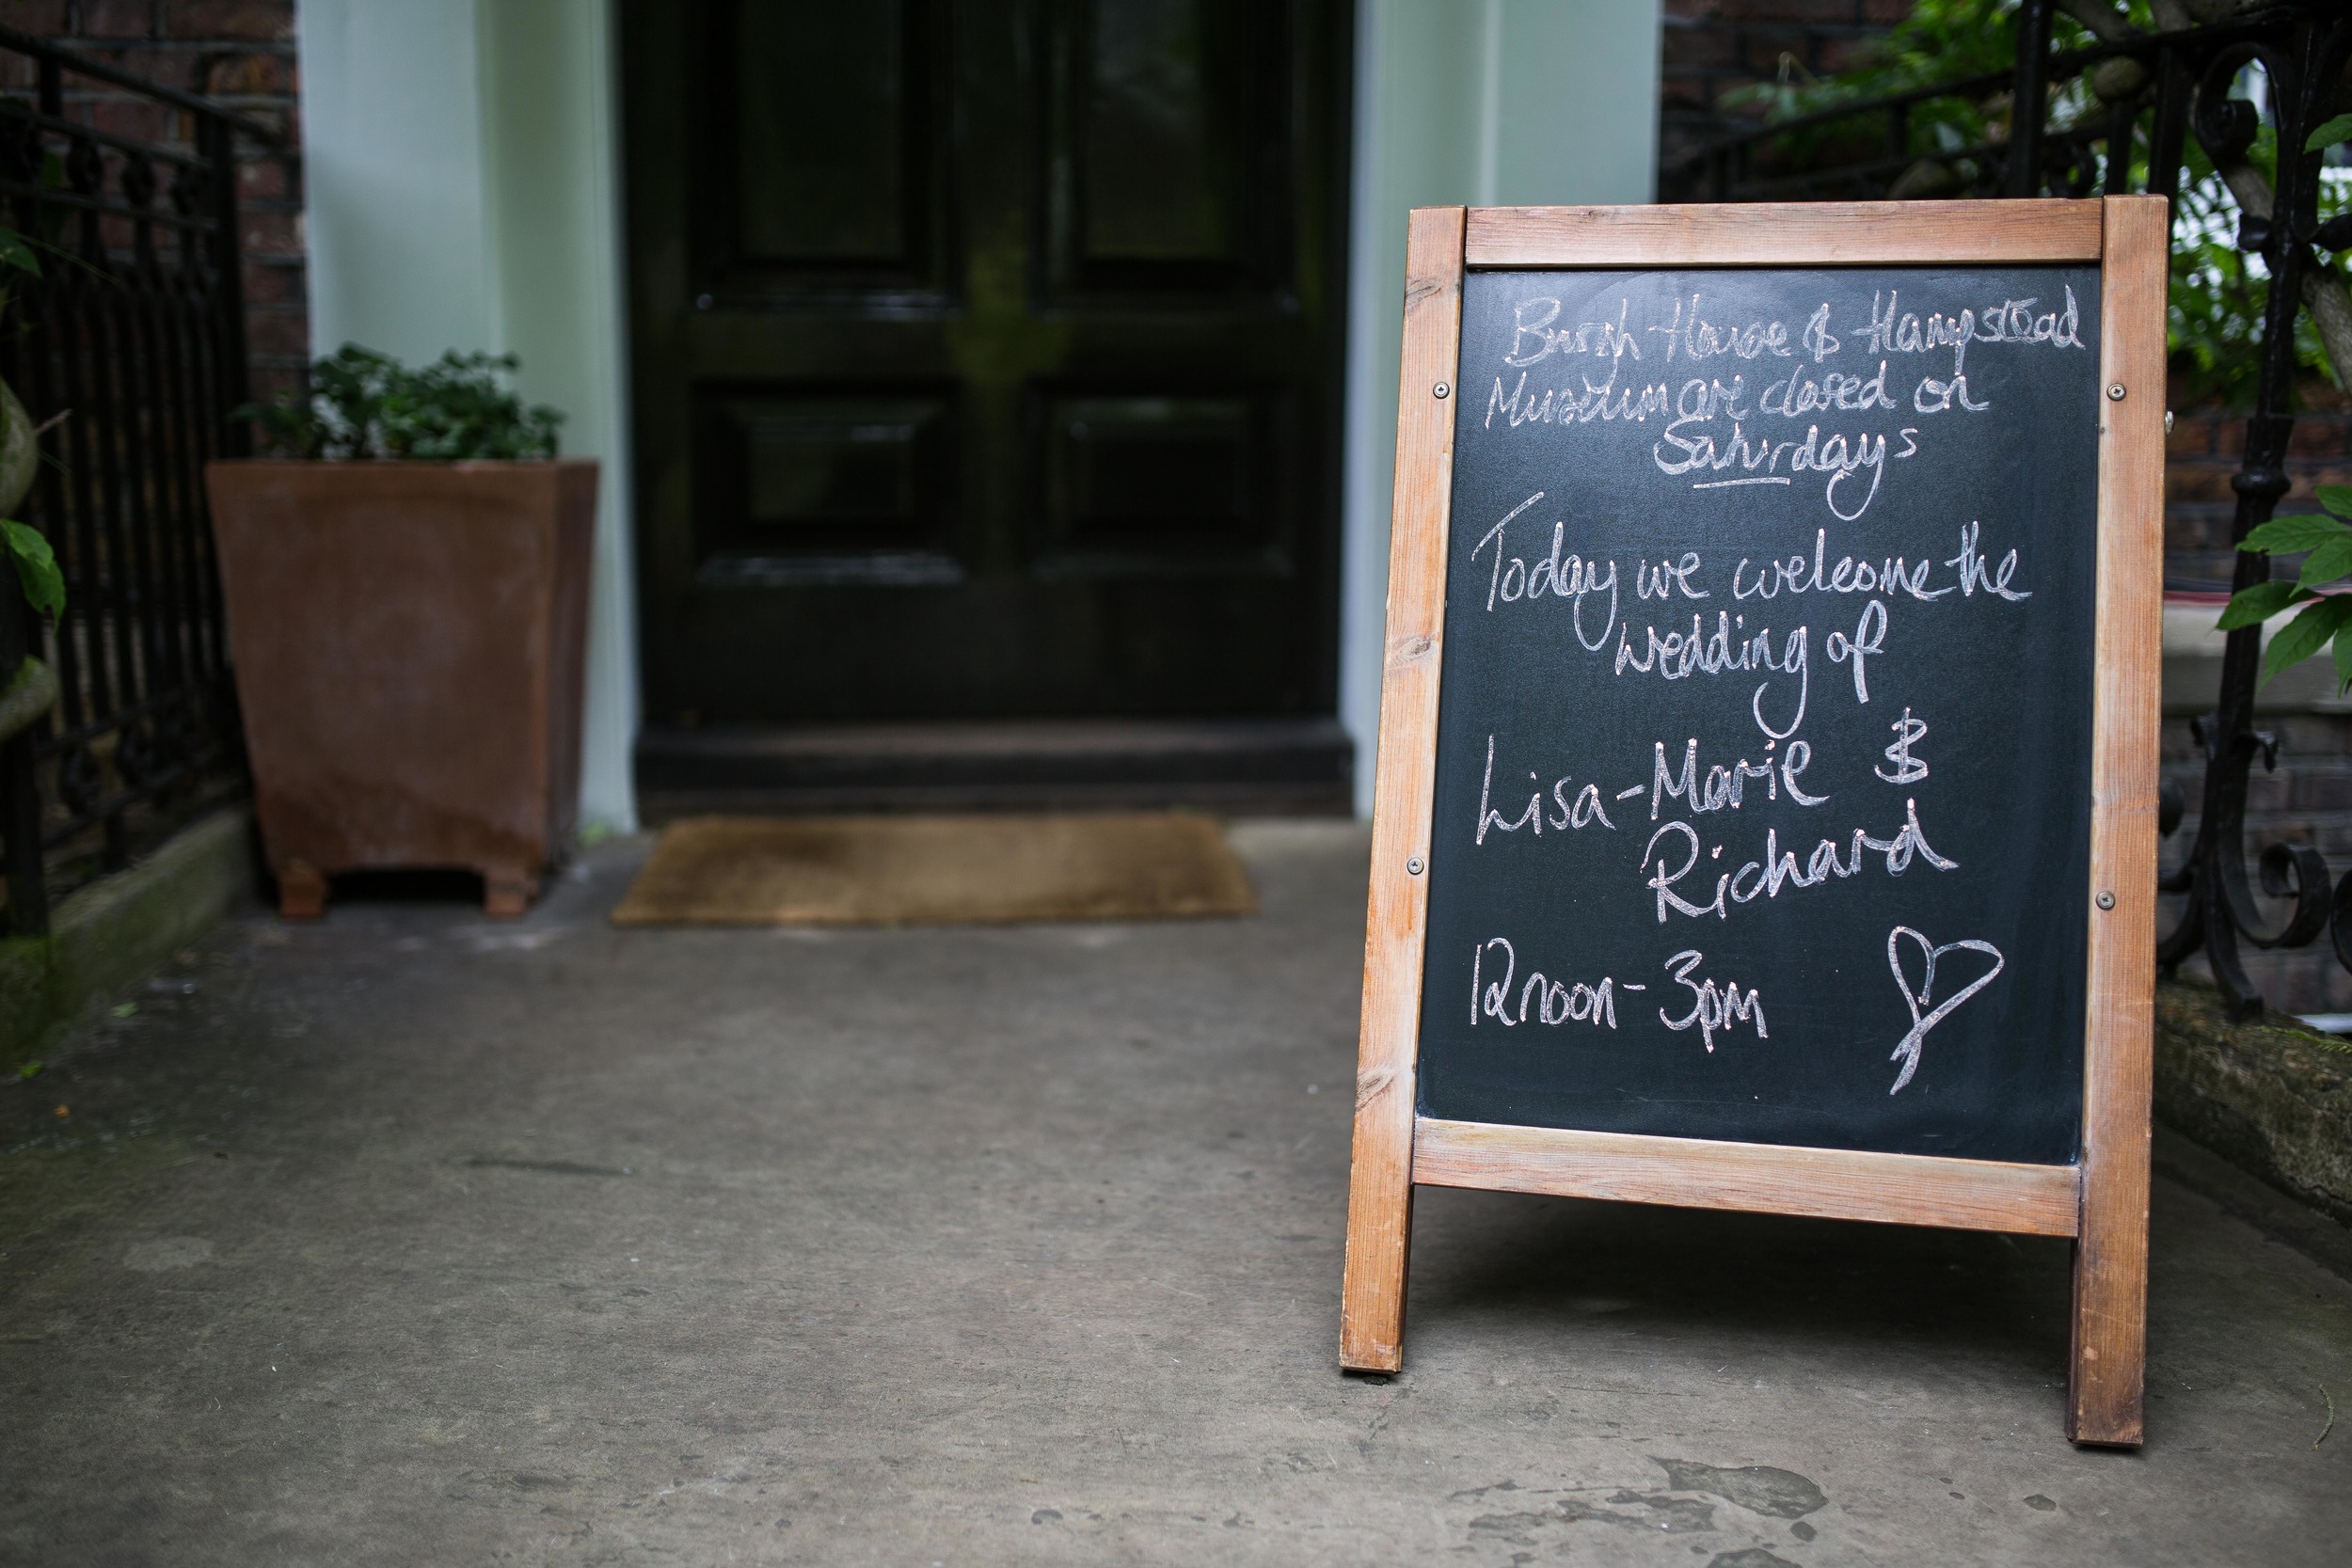 Burgh House & Hampstead
Museum are closed on
Saturdays
Today we welcome the
wedding of
Lisa-Marie &
Richard
12noon - 3pm